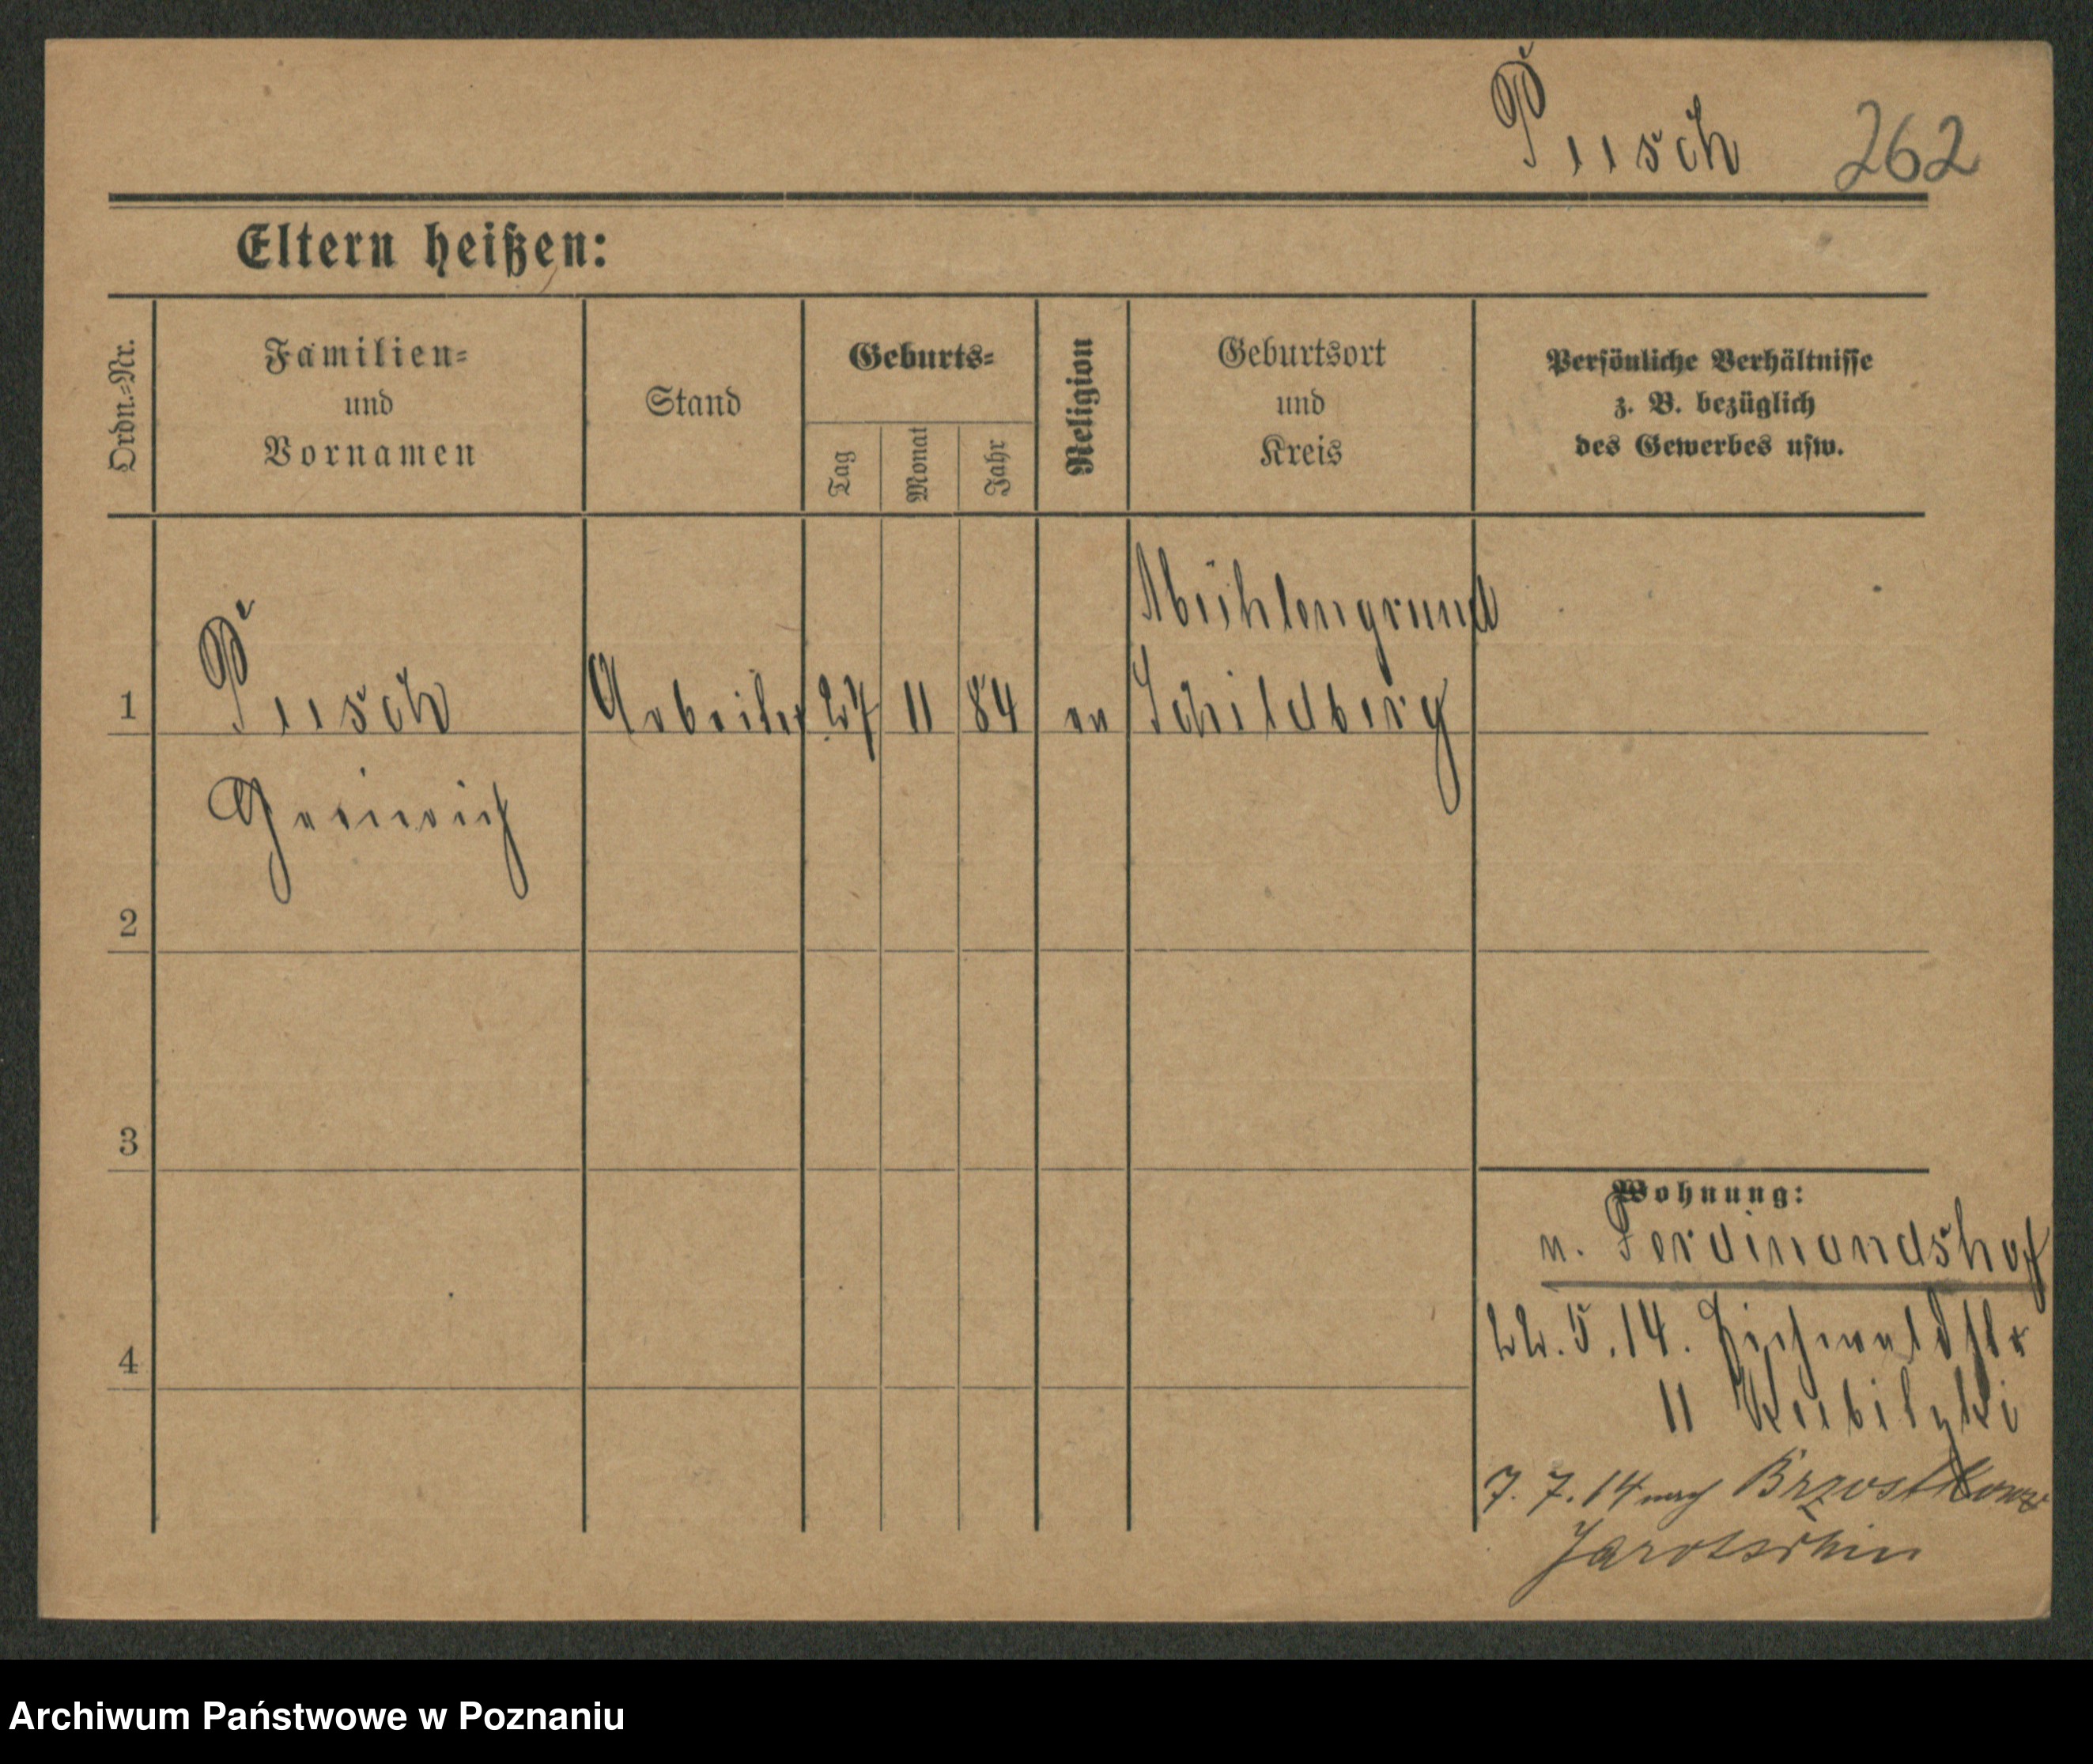 Pusch 262
Eltern heißen:
Ordn.=Nr.
Familien=
und
Vornamen
Stand
Geburts=
Tag
Monat
Jahr
Religion
Geburtsort
und
Kreis
Persönliche Verhältnisse
z. B. bezüglich
des Gewerbes usw.
Mühlengrund
1 Pusch Arbeiter 27 11 84 ev Schildberg
Heinrich
2
3
Wohnung:
n. Ferdinandshof
22. 5. 14. Eichwaldstr
4
11
7. 7. 14 nach Brzostkow
Jarotschin
Archiwum Państwowe w Poznaniu